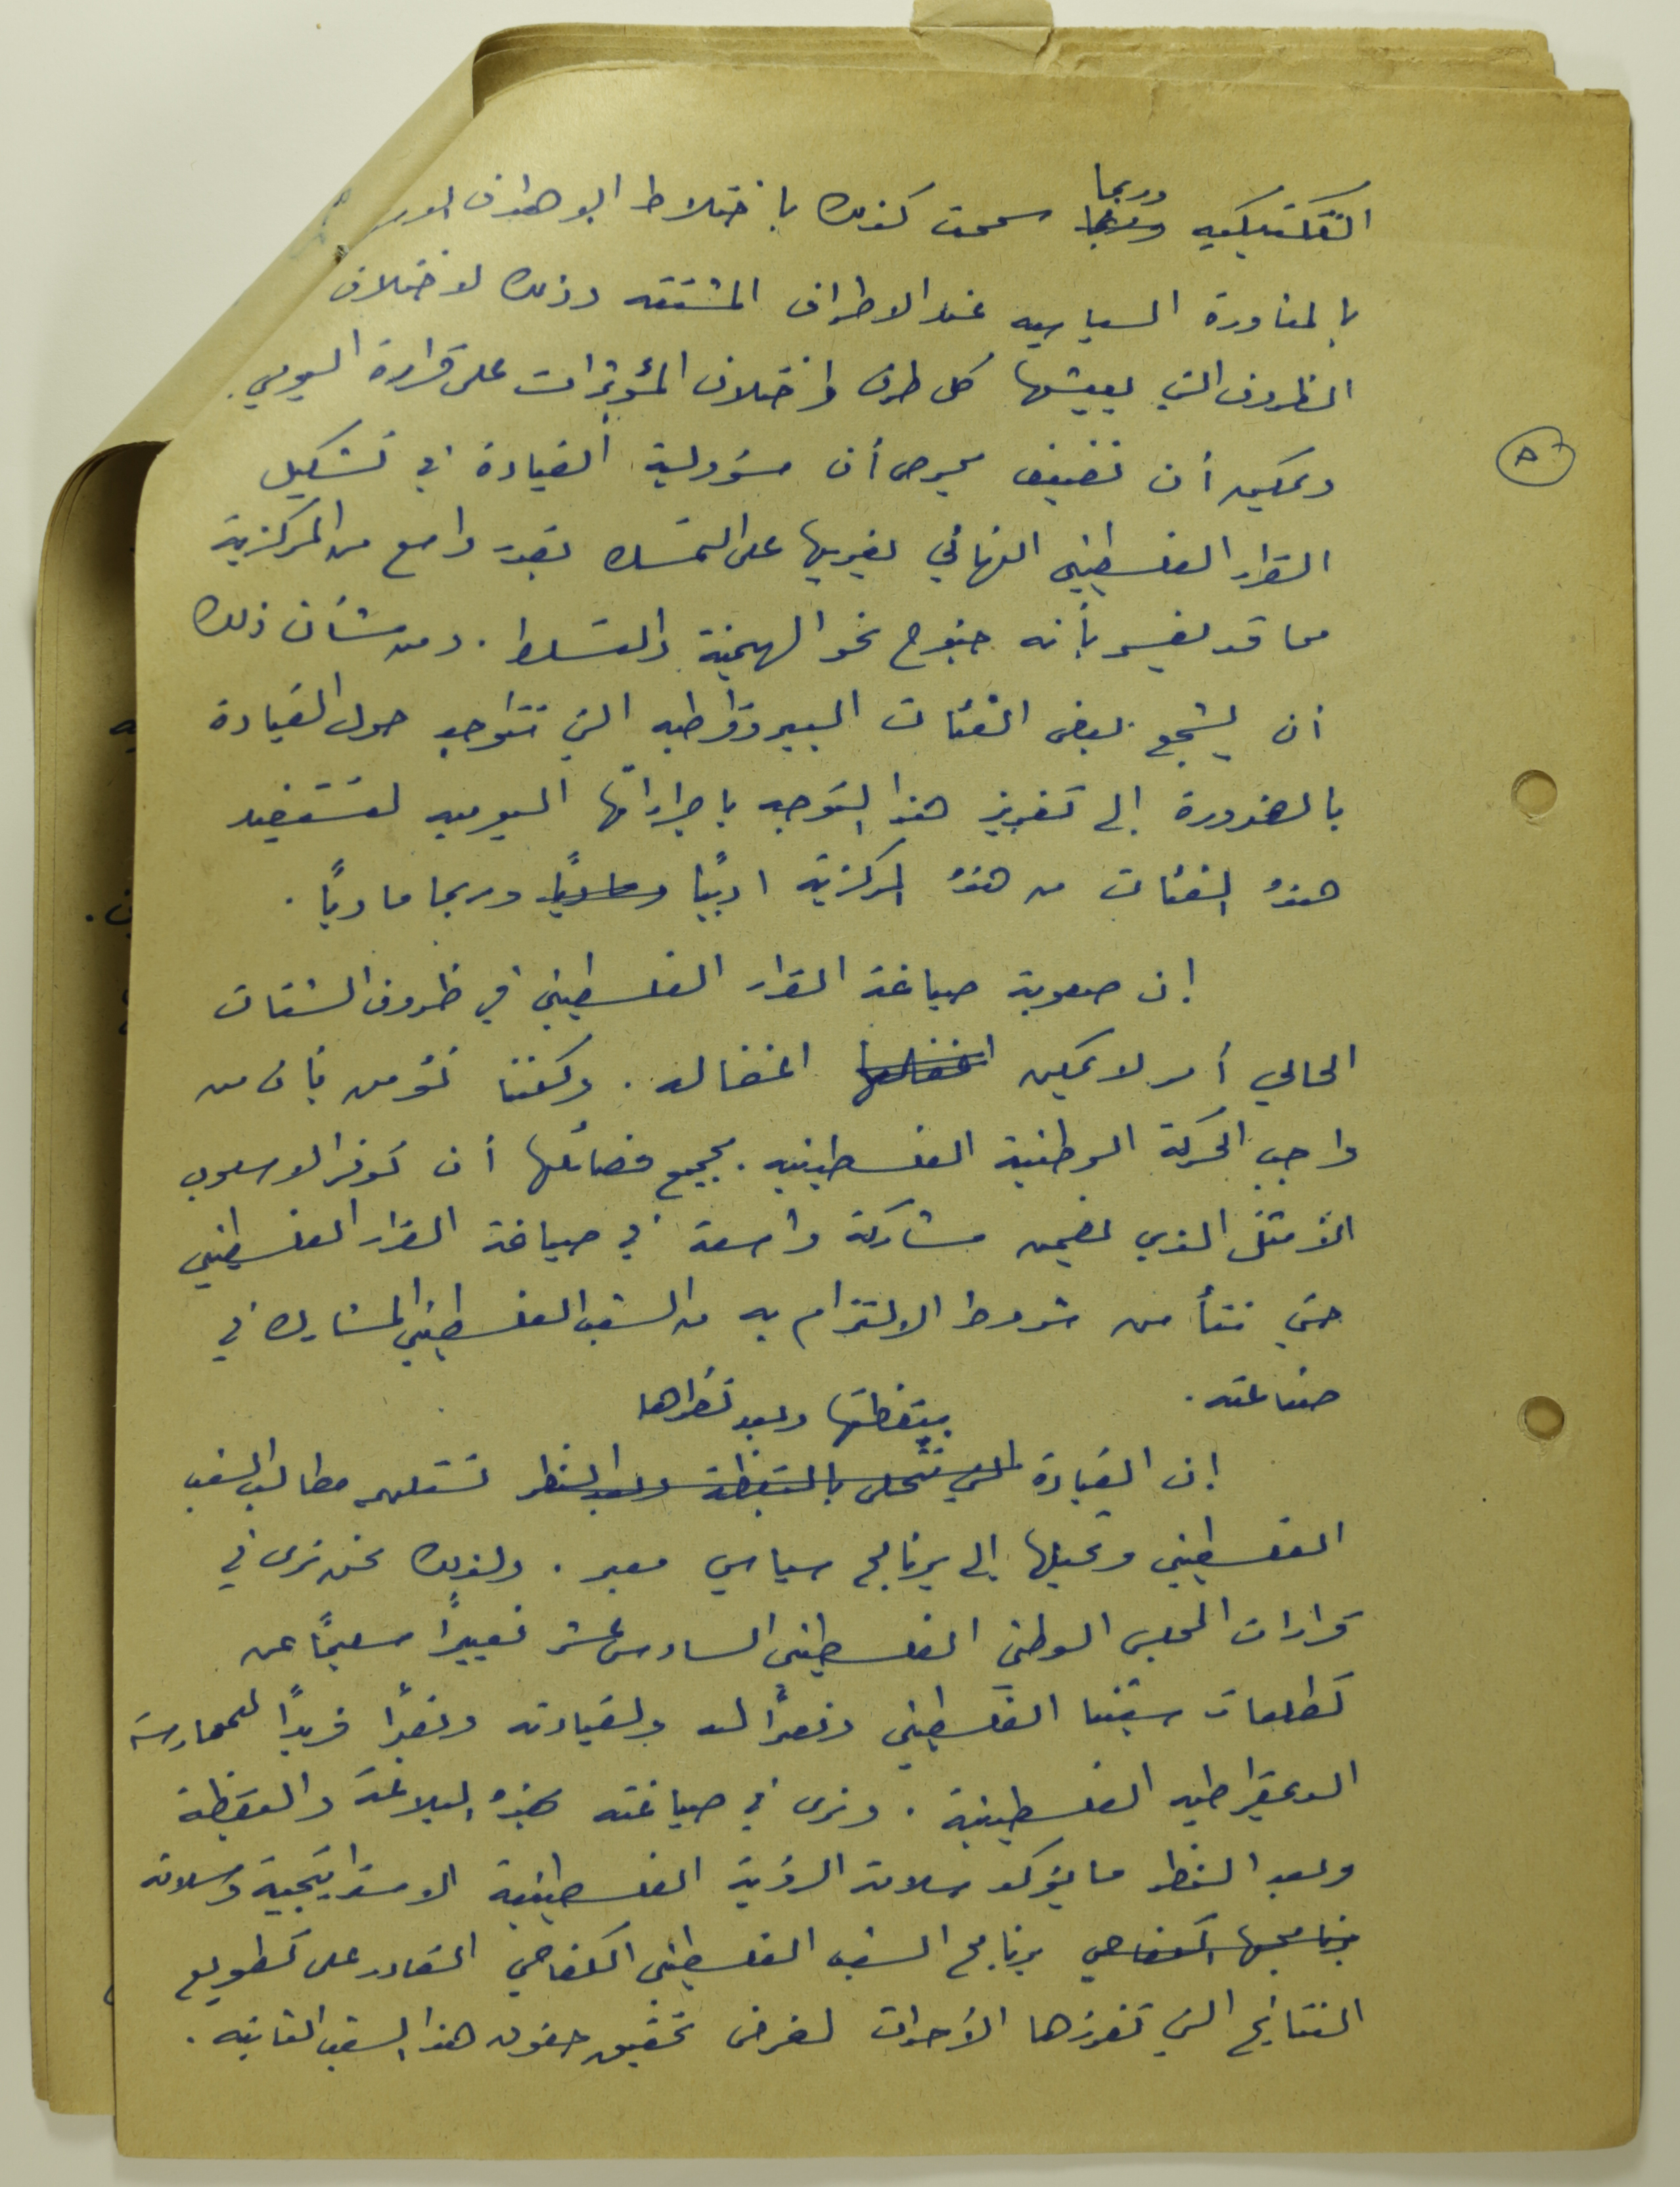 التكتيكيه وربما سمحت كذلك باختلاط الاهداف
بالمناورة السياسيه عند الاطراف المشتته وذلك لاختلاف
الظروف التي يعيشها كل طرف واختلاف المؤثرات على قراره اليومي.
ويمكن أن نضيف بحرص أن مسؤولية القيادة في تشكيل
القرار الفلسطيني النهائي يغريها على التمسك بقدر واسع من المركزية
مما قد يفسر بأنه جنوح نحو الهيمنة والتسلط. ومن شأن ذلك
أن يشجع بعض الفئات البيروقراطيه التي تتواجد حول القيادة
بالضرورة إلى تعزيز هذا التوجه باجراءاتها اليوميه لتستفيد
هذه الفئات من هذه المركزية ادبيًا وماديًا وربما ماديًا.
إن صعوبة صياغة القرار الفلسطيني في ظروف الشتات
الحالي أمر لا يمكن اغفالها اغفاله. ولكننا نؤمن بأن من
واجب الحركة الوطنية الفلسطينيه بجميع فصائلها أن توفر الاسلوب
الأمثل الذي يضمن مشاركة واسعة في صياغة القرار الفلسطيني
حتى تتأمن شروط الالتزام به من الشعب الفلسطيني المشارك في
صناعته.
بيقظتها وبعد نظرها
إن القيادة التي تتحلى باليقظة وبعد النظر تستلهم مطالب الشعب
الفلسطيني وتحيلها إلى برنامج سياسي معبر. ولذلك نحن نرى في
قرارات المجلس الوطني الفلسطيني السادس عشر تعبيرًا سليمًا عن
تطلعات شعبنا الفلسطيني ونصرًا له ولقيادته ونصرًا فريدًا للممارسة
الديمقراطيه الفلسطينية. ونرى في صياغته بهذه البلاغة واليقظة
وبعد النظر ما يؤكد سلامة الرؤية الفلسطينية الاستراتيجية وسلامة
برنامجها الكفاحي برنامج الشعب الفلسطيني الكفاحي القادر على تطويع
النتائج التي تفرزها الأحداث لغرض تحقيق حقوق هذا الشعب الثابته.
٨